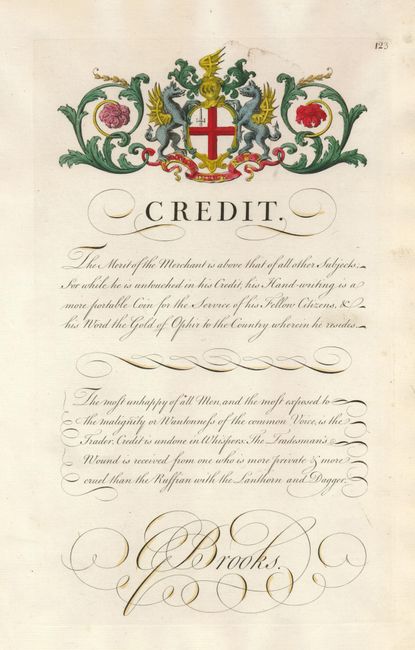 123
CREDIT.
The Merit of the Merchant is above that of all other Subjects;
For while he is untouched in his Credit, his Hand-writing is a
more portable Coin for the Service of his Fellow Citizens, &
his Word the Gold of Ophir to the Country wherein he resides.
The most unhappy of all Men, and the most exposed to
the malignity or Wantonness of the common Voice, is the
Trader. Credit is undone in Whispers: The Tradesman's
Wound is received from one who is more private & more
cruel than the Ruffian with the Lanthorn and Dagger.
Brooks.